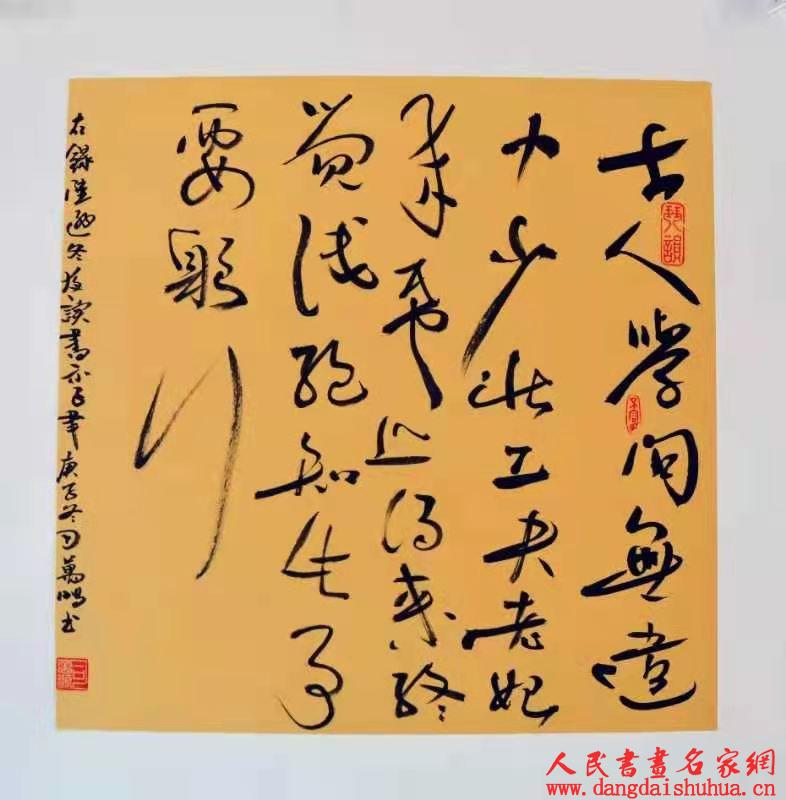 古人學问無遗
力少壮工夫老始
成帋上得来终
觉浅绝知此事
要躬行
右録陸遊冬夜读書示子聿 庚子冬司萬鵬书
人民書畫名家網
www.dangdaishuhua.cn